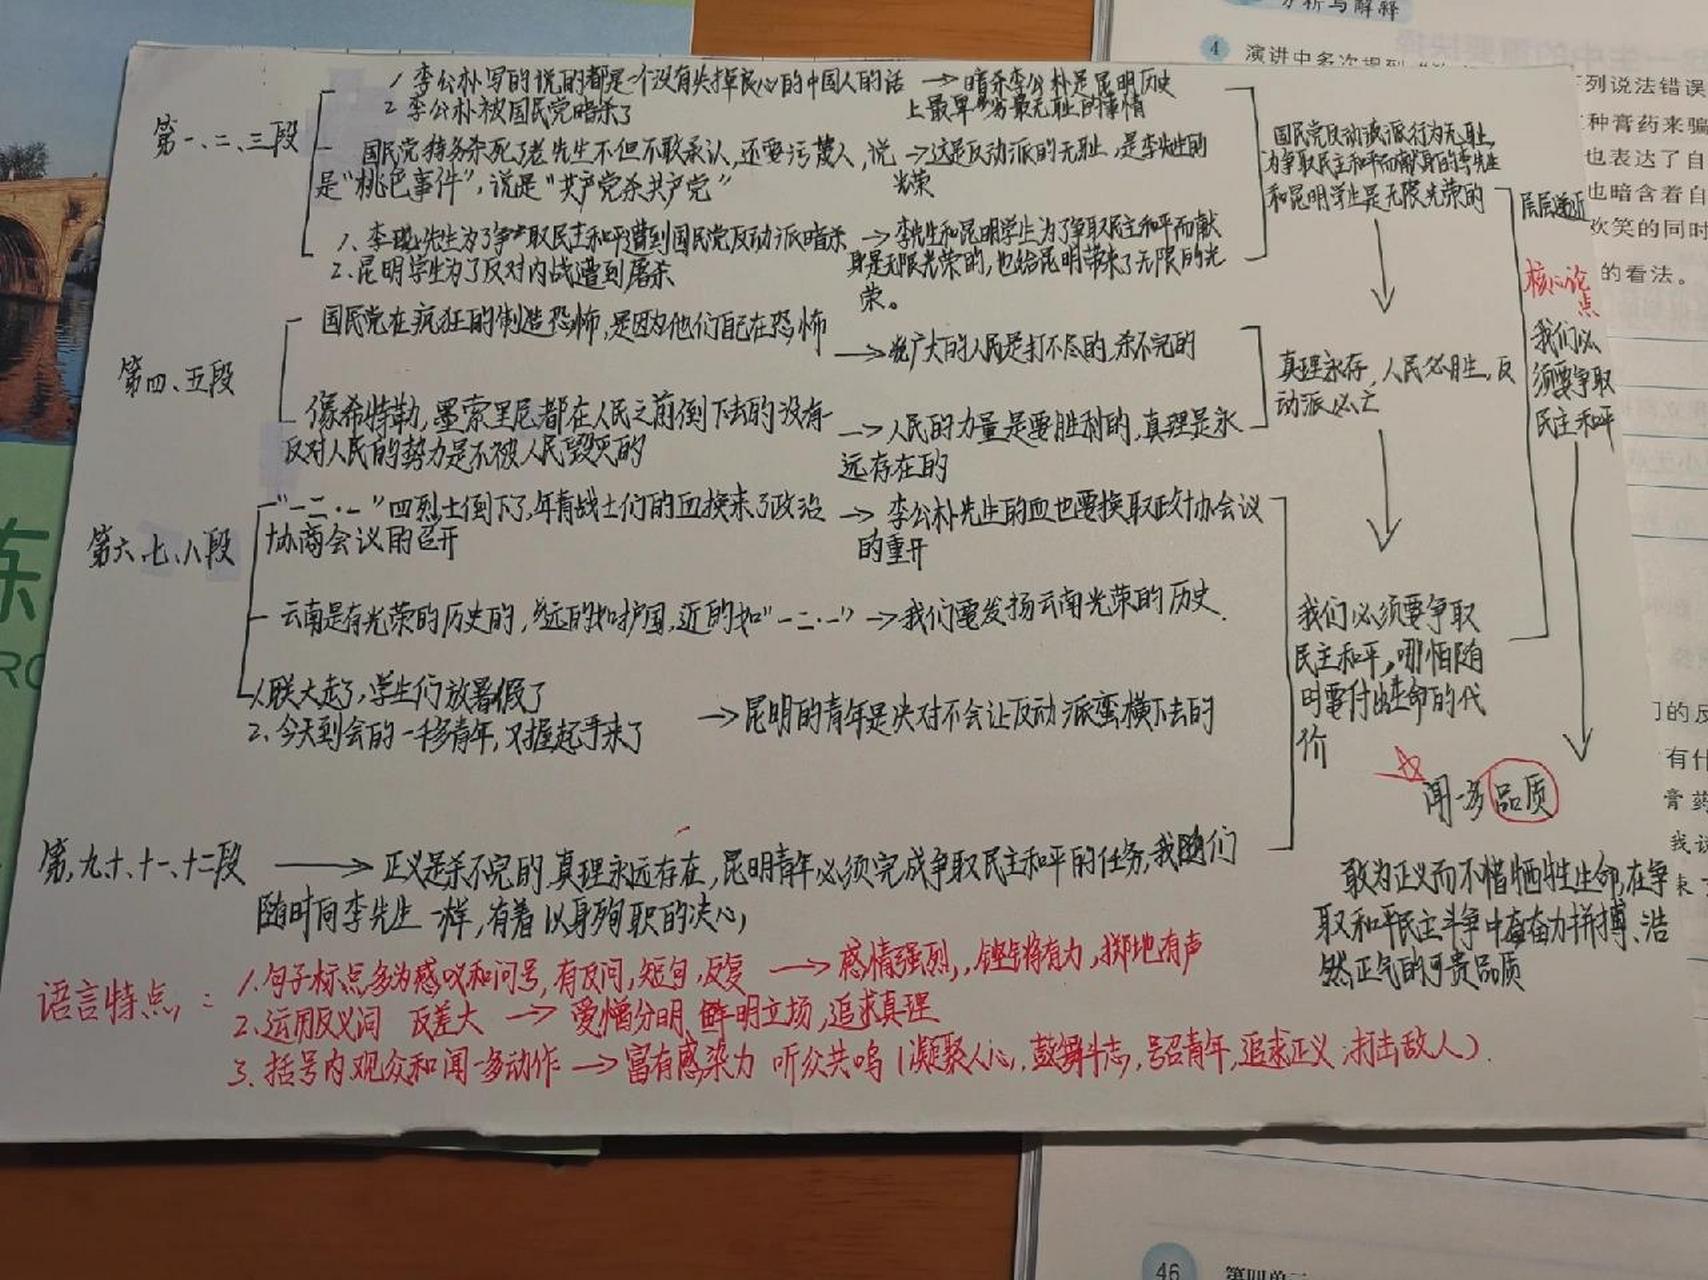 分析与解释
4 演讲中多次提到
列说法错误
种膏药来骗
也表达了自
也暗含着自
欢笑的同时
的看法。
第一、二、三段
1. 李公朴写的说的都是一个没有失掉良心的中国人的话 → 暗杀李公朴是昆明历史
2 李公朴被国民党暗杀了
上最卑劣最无耻的事情
国民党特务杀死了李先生不但不敢承认,还要污蔑人,说
是“桃色事件”,说是“共产党杀共产党”
→这是反动派的无耻,是李先生的
光荣
1、李先生为了争取民主和平遭到国民党反动派暗杀
2.昆明学生为了反对内战遭到屠杀
→李先生和昆明学生为了争取民主和平而献
身是无限光荣的,也给昆明带来了无限的光
荣。
国民党反动派行为无耻,
为争取民主和平而献身的李先生
和昆明学生是无限光荣的
层层递进
第四、五段
国民党在疯狂的制造恐怖,是因为他们自己在恐怖
→广大的人民是打不尽的,杀不完的
像希特勒,墨索里尼都在人民之前倒下去的没有一
反对人民的势力是不被人民毁灭的
→人民的力量是要胜利的,真理是永
远存在的
真理永存,人民必胜,反
动派必亡
核心论
点
我们必
须要争取
民主和平
第六、七、八段
“一二·一”四烈士倒下了,年青战士们的血换来了政治
协商会议的召开
→ 李公朴先生的血也要换取政协会议
的重开
云南是有光荣的历史的,远的如护国,近的如“一二·一” →我们要发扬云南光荣的历史.
1.联大走了,学生们放暑假了
2.今天到会的一多青年,又握起手来了
→昆明的青年是决对不会让反动派蛮横下去的
我们必须要争取
民主和平,哪怕随
时要付出生命的代
价
闻一多品质
第,九十、十一、十二段 → 正义是杀不完的,真理永远存在,昆明青年必须完成争取民主和平的任务,我们
随时向李先生一样,有着以身殉职的决心,
敢为正义而不惜牺牲生命,在争
取和平民主斗争中奋力拼搏、浩
然正气的可贵品质
语言特点:
1.句子标点多为感叹和问号,有反问,短句,反复 → 感情强烈,,铿锵有力,掷地有声
2.运用反义词 反差大 → 爱憎分明 鲜明立场,追求真理
3.括号内观众和闻一多动作 → 富有感染力 听众共鸣(凝聚人心,鼓舞斗志,号召青年,追求正义,打击敌人).
的反
有什
膏药
我说
表
46 第四单元